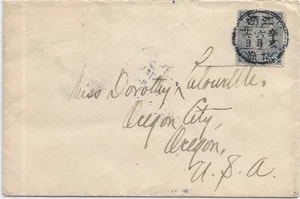 Miss Dorothy Latourette.
Oregon City,
Oregon,
U. S. A.